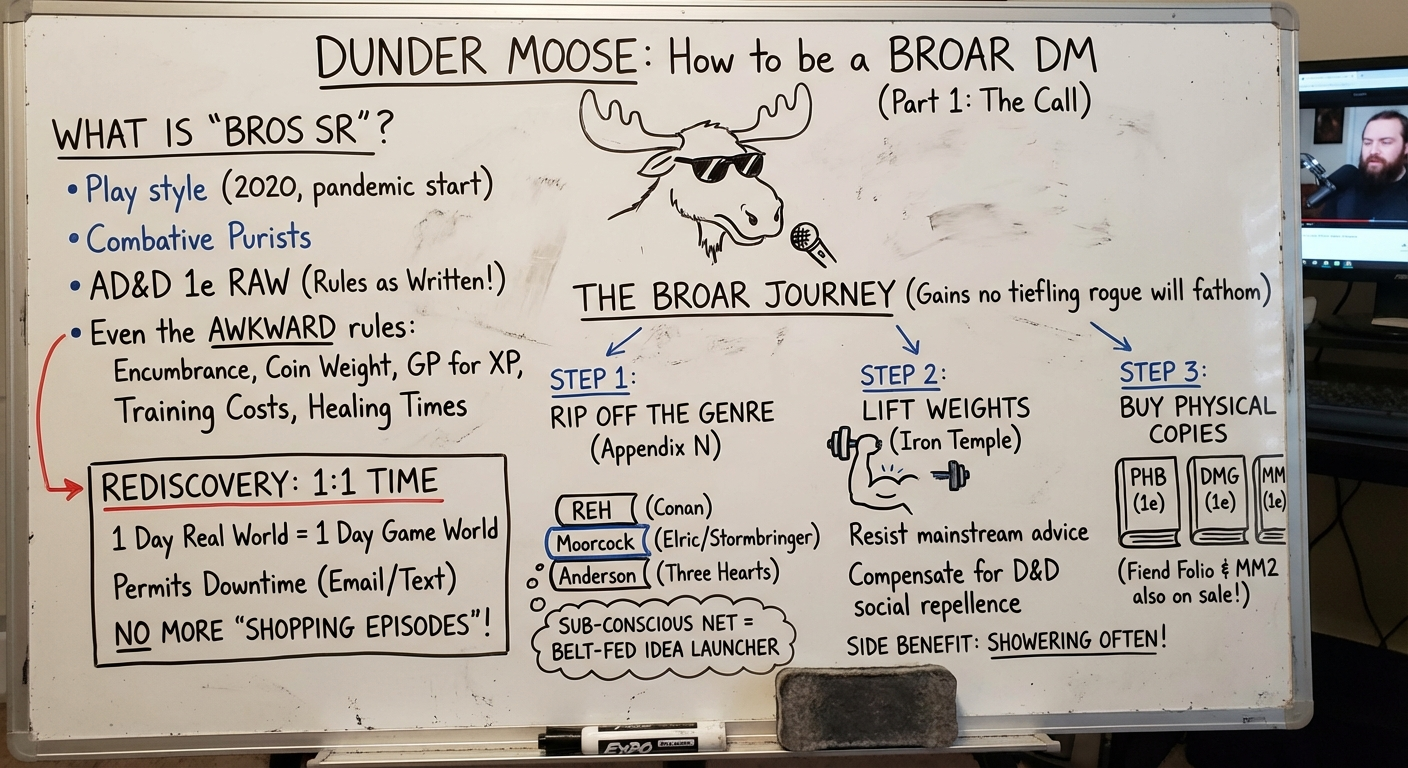 DUNDER MOOSE: How to be a BROAR DM
(Part 1: The Call)
WHAT IS "BROS SR"?
• Play style (2020, pandemic start)
• Combative Purists
• AD&D 1e RAW (Rules as Written!)
• Even the AWKWARD rules:
Encumbrance, Coin Weight, GP for XP,
Training Costs, Healing Times
REDISCOVERY: 1:1 TIME
1 Day Real World = 1 Day Game World
Permits Downtime (Email/Text)
NO MORE "SHOPPING EPISODES"!
THE BROAR JOURNEY (Gains no tiefling rogue will fathom)
STEP 1:
RIP OFF THE GENRE
(Appendix N)
REH (Conan)
Moorcock (Elric/Stormbringer)
Anderson (Three Hearts)
SUB-CONSCIOUS NET =
BELT-FED IDEA LAUNCHER
STEP 2:
LIFT WEIGHTS
(Iron Temple)
Resist mainstream advice
Compensate for D&D
social repellence
SIDE BENEFIT: SHOWERING OFTEN!
STEP 3:
BUY PHYSICAL
COPIES
PHB
(1e)
DMG
(1e)
MM
(1e)
(Fiend Folio & MM2
also on sale!)
EXPO